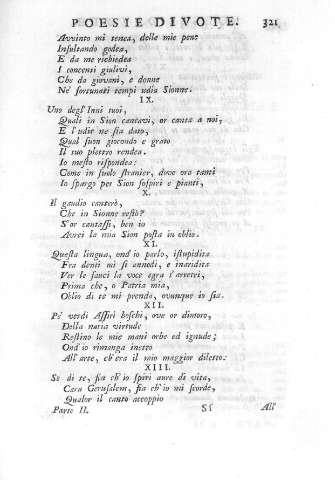 POESIE DIVOTE. 321
Avvinto mi tenea, delle mie pene
Insultando godea,
E da me richiedea
I concenti giulivi,
Che da giovani, e donne
Ne' fortunati tempi udia Sionne.
IX.
Uno degl' Inni tuoi,
Quali in Sion cantavi, or canta a noi,
E l'udir ne sia dato,
Qual suon giocondo e grato
Il suo plettro rendea.
Io mesto rispondea:
Come in suolo stranier, dove ora tanti
Io spargo per Sion sospiri e pianti,
X.
Il gaudio canterò,
Che in Sionne restò?
S'or cantassi, ben io
Avrei la mia Sion posta in oblio.
XI.
Questa lingua, ond'io parlo, istupidita
Fra denti mi si annodi, e inaridita
Ver le fauci la voce egra s'arretri,
Prima che, o Patria mia,
Oblio di te mi prenda, ovunque io sia.
XII.
Pe' verdi Assiri boschi, ove or dimoro,
Della natia virtude
Restino le mie mani orbe ed ignude;
Ond'io rimanga inetto
All'arte, ch'era il mio maggior diletto.
XIII.
Se di te, sia ch'io spiri aure di vita,
Cara Gerusalem, sia ch'io mi scorde,
Qualor il canto accoppio
Parte II. Sf All'